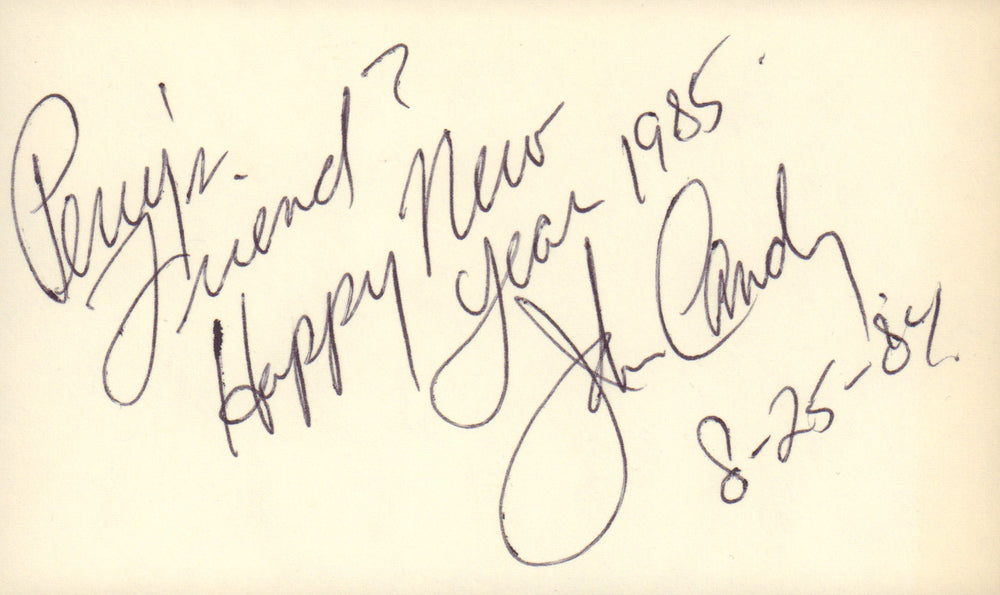 Perry's
Friend?
Happy New
Year 1985
John Candy
8-25-84